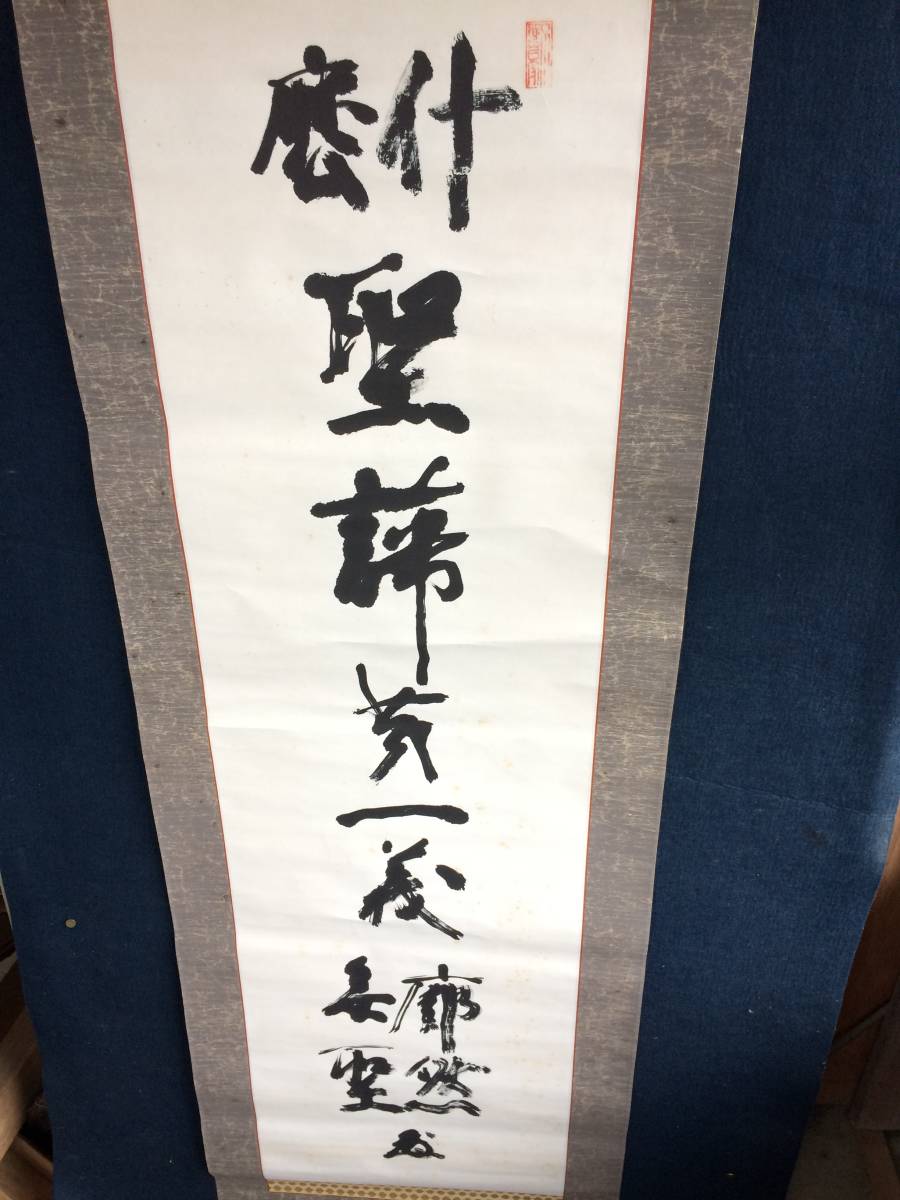 什麼
聖諦第一義
廓然
無聖